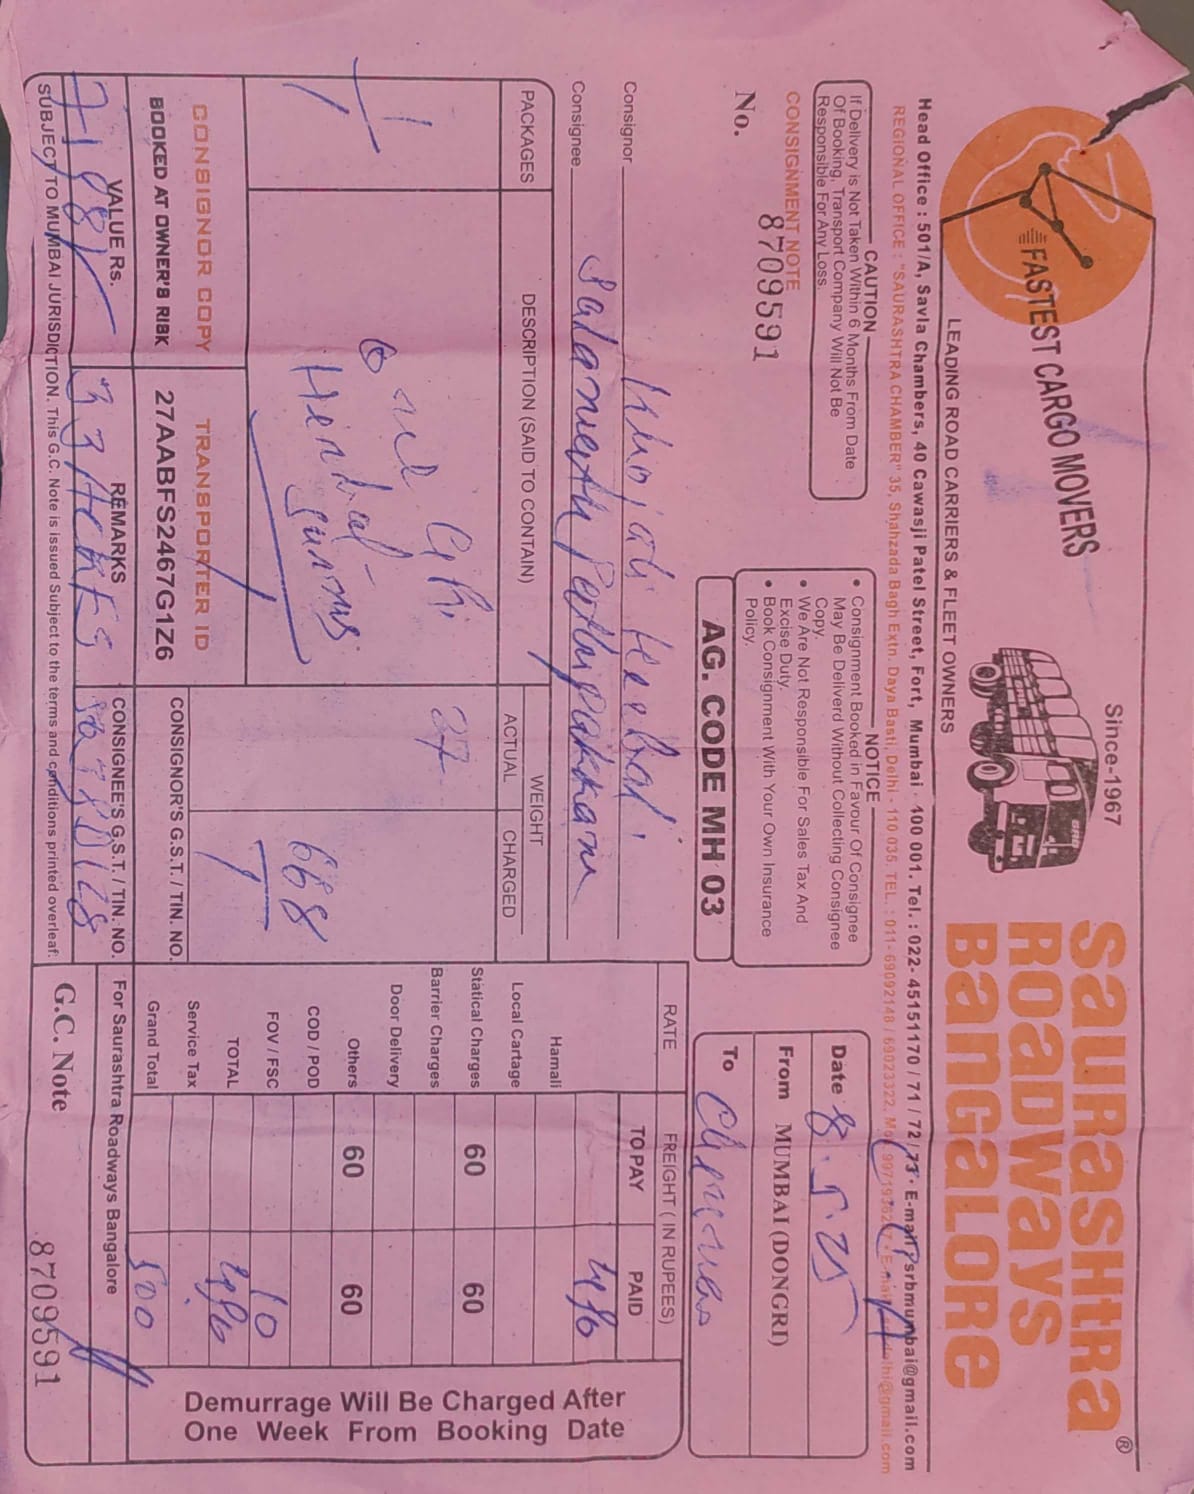 FASTEST CARGO MOVERS
Since-1967
SAURASHTRA
ROADWAYS
BANGALORE
®
LEADING ROAD CARRIERS & FLEET OWNERS
Head Office : 501/A, Savla Chambers, 40 Cawasji Patel Street, Fort, Mumbai - 400 001. Tel. : 022- 45151170 / 71 / 72 / 73 • E-mail : srbmumbai@gmail.com
REGIONAL OFFICE : "SAURASHTRA CHAMBER" 35, Shahzada Bagh Extn. Daya Basti, Delhi - 110 035. TEL. : 011- 69092148 / 69023322,
CAUTION
If Delivery is Not Taken Within 6 Months From Date
Of Booking, Transport Company Will Not Be
Responsible For Any Loss.
NOTICE
• Consignment Booked in Favour Of Consignee
May Be Deliverd Without Collecting Consignee
Copy.
• We Are Not Responsible For Sales Tax And
Excise Duty.
• Book Consignment With Your Own Insurance
Policy.
Date 8.5.25
From MUMBAI (DONGRI)
To Chennai
CONSIGNMENT NOTE
No. 8709591
AG. CODE MH 03
Consignor
Consignee
PACKAGES
DESCRIPTION (SAID TO CONTAIN)
WEIGHT
ACTUAL
CHARGED
RATE
FREIGHT ( IN RUPEES)
TO PAY
PAID
1
27
668
486
Hamali
Local Cartage
Statical Charges 60 60
Barrier Charges
Door Delivery
Others 60 60
COD / POD
FOV / FSC 10
TOTAL 496
Service Tax
Grand Total 500
Demurrage Will Be Charged After
One Week From Booking Date
CONSIGNOR COPY
TRANSPORTER ID
BOOKED AT OWNER'S RISK
27AABFS2467G1Z6
CONSIGNOR'S G.S.T. / TIN. NO.
VALUE Rs.
REMARKS
CONSIGNEE'S G.S.T. / TIN. NO.
For Saurashtra Roadways Bangalore
SUBJECT TO MUMBAI JURISDICTION. This G.C. Note is issued Subject to the terms and conditions printed overleaf.
G.C. Note
8709591